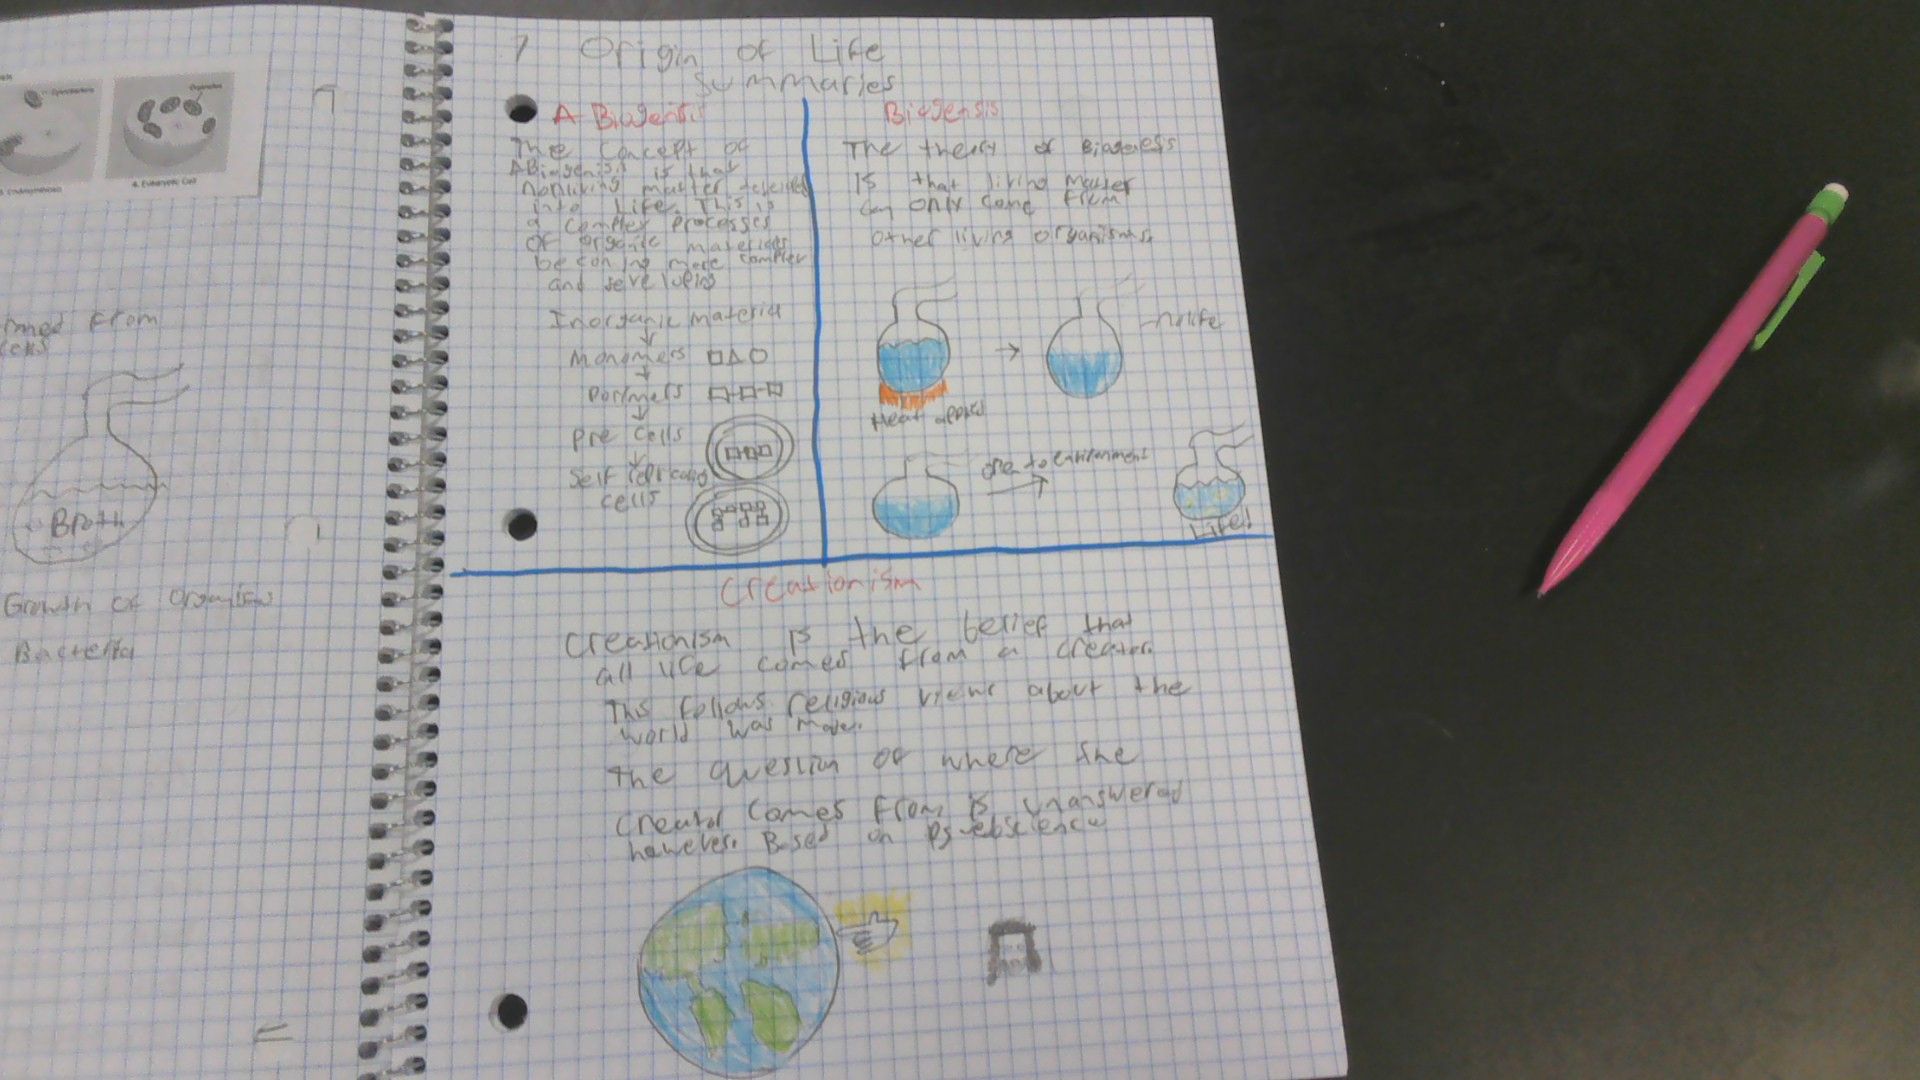 Organelles
4. Eukaryotic Cell
from
Broth
Growth of organism
Bacteria
7 Origin of Life
Summaries
A Biogensis
The concept of
ABiogenisis is that
nonliving matter
into Life. This is
a complex processes
of organic materials
becoming more complex
and
Inorganic material
Monomers
Polymers
Pre cells
Self
cells
Biogensis
The theory of Biogenesis
is that living matter
can only come from
other living organisms.
nolife
Heat applied
open to environment
Life!
Creationism
Creationism is the belief that
all life comes from a creator.
This follows religious views about the
world was made.
The question of where the
creator comes from is unanswered
however. Based on